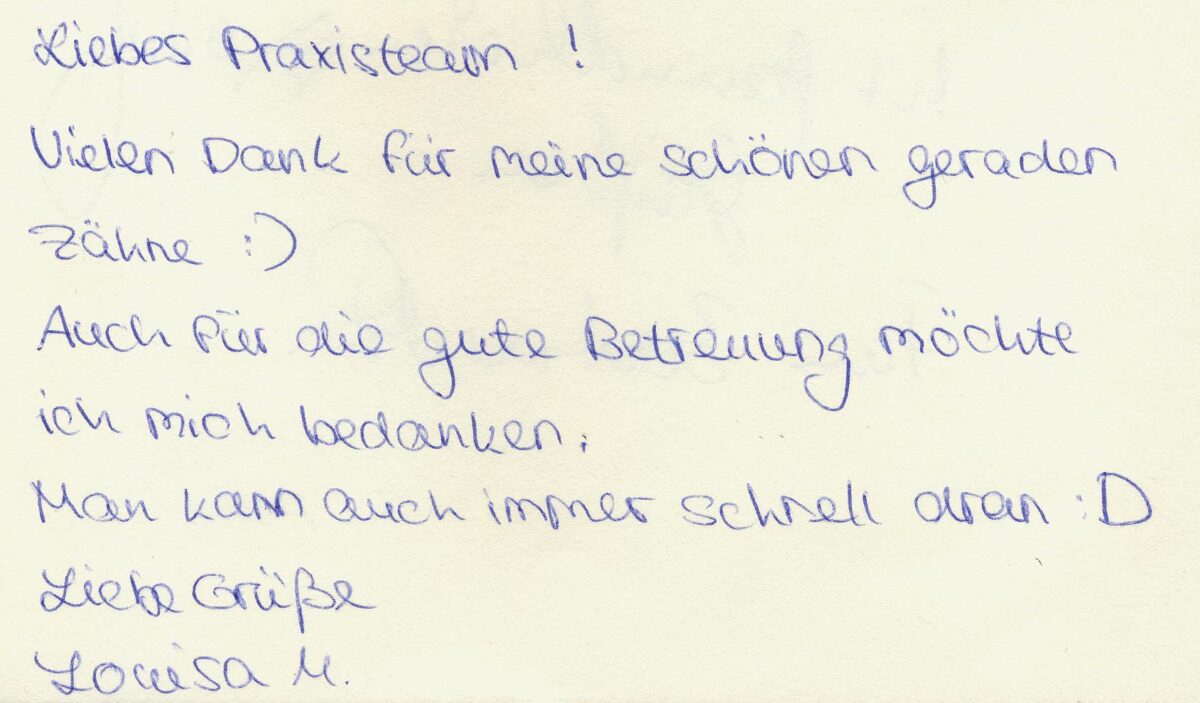 Liebes Praxisteam !
Vielen Dank für meine schönen geraden
Zähne :)
Auch für die gute Betreuung möchte
ich mich bedanken.
Man kann auch immer schnell dran :D
Liebe Grüße
Louisa M.